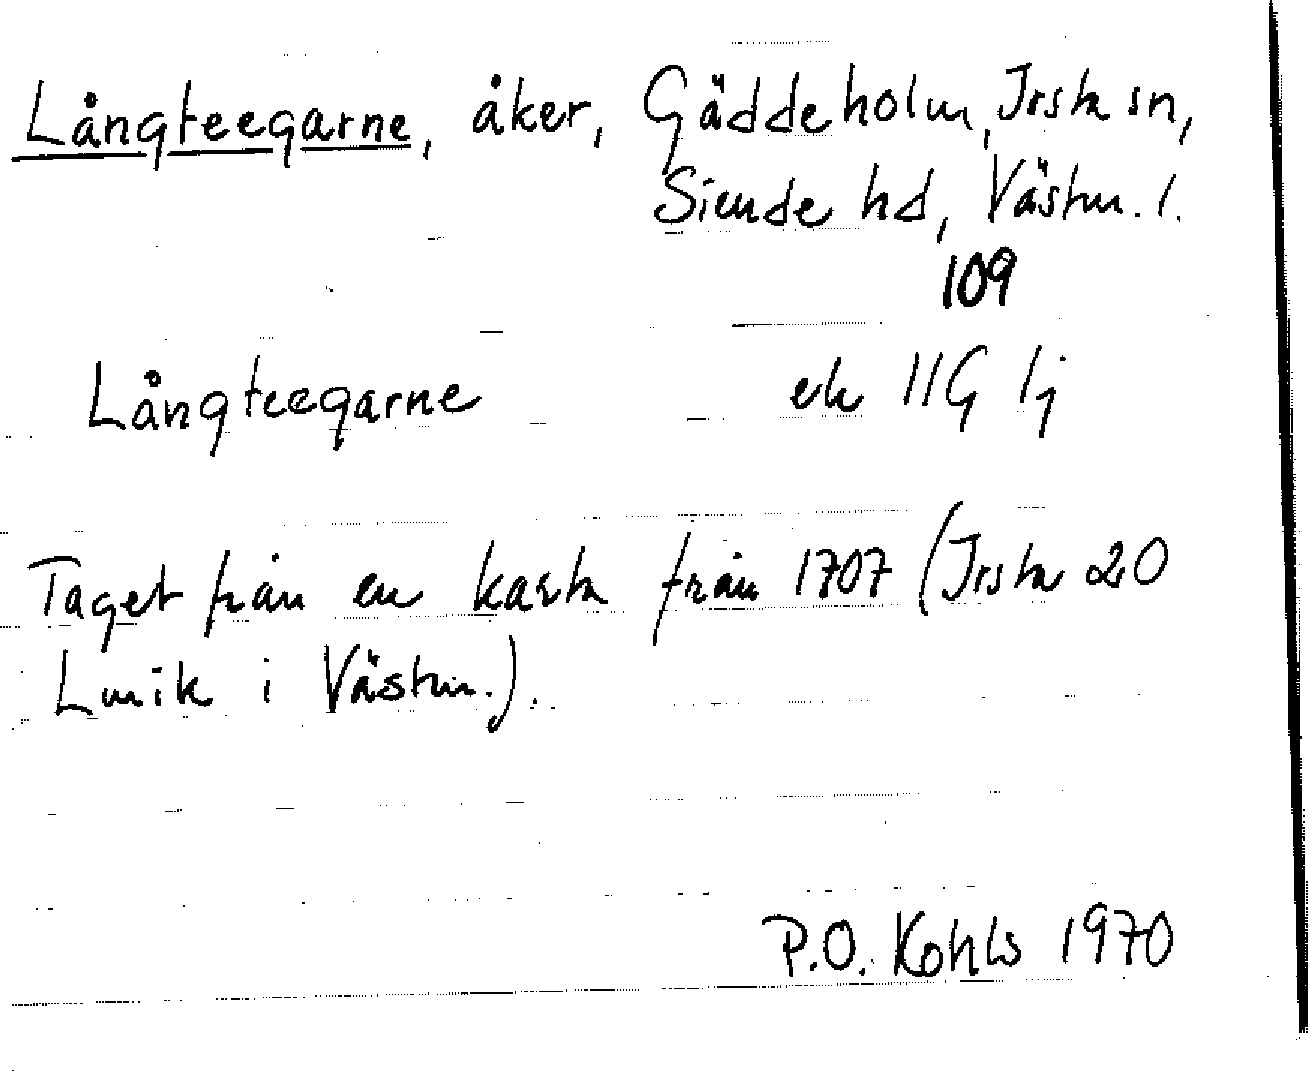 Långteegarne, åker, Gäddeholm, Irsta sn,
Siende hd, Västm. l.
109
Långteegarne ek 11G 1j
Taget från en karta från 1707 (Irsta 20
Lmik i Västm.).
P.O. Kohls 1970